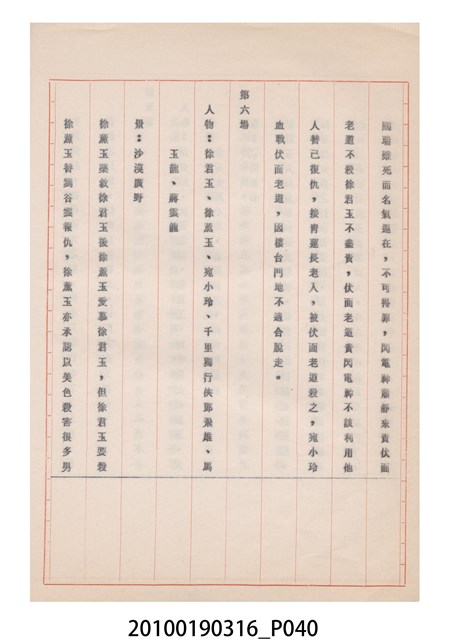 國瑞雖死而名氣還在，不可侮辱，閃電神蕭靜來責伏面
老道不殺徐君玉不盡責，伏面老道責閃電神不該利用他
人替己復仇，接胥蓮長老入，被伏面老道殺之，宛小玲
血戰伏面老道，因樓台鬥地不適合脫走。
第六場
人物：徐君玉、徐蕙玉、宛小玲、千里獨行俠鄭飛雄、馬
玉龍、蔣雲龍
景：沙漠廣野
徐蕙玉藥救徐君玉後徐蕙玉愛慕徐君玉，但徐君玉要殺
徐蕙玉替鷄谷雲報仇，徐蕙玉亦承認以美色殺害很多男
20100190316_P040